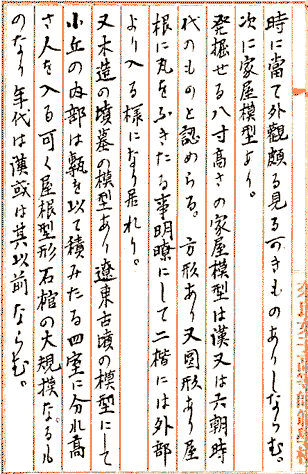 時に當て外觀頗る見る可きものありしならむ。
次に家屋模型あり。
発掘せる八寸高さの家屋模型は漢又は六朝時
代のものと認めらる。方形あり又圓形あり屋
根に瓦をふきたる事明瞭にして二楷には外部
より入る様になり居れり。
又木造の墳墓の模型あり遼東古墳の模型にして
小丘の内部は甎を以て積みたる四室に分れ高
さ人を入る可く屋根型形石棺の大規模なるも
のなり年代は漢或は其以前ならむ。